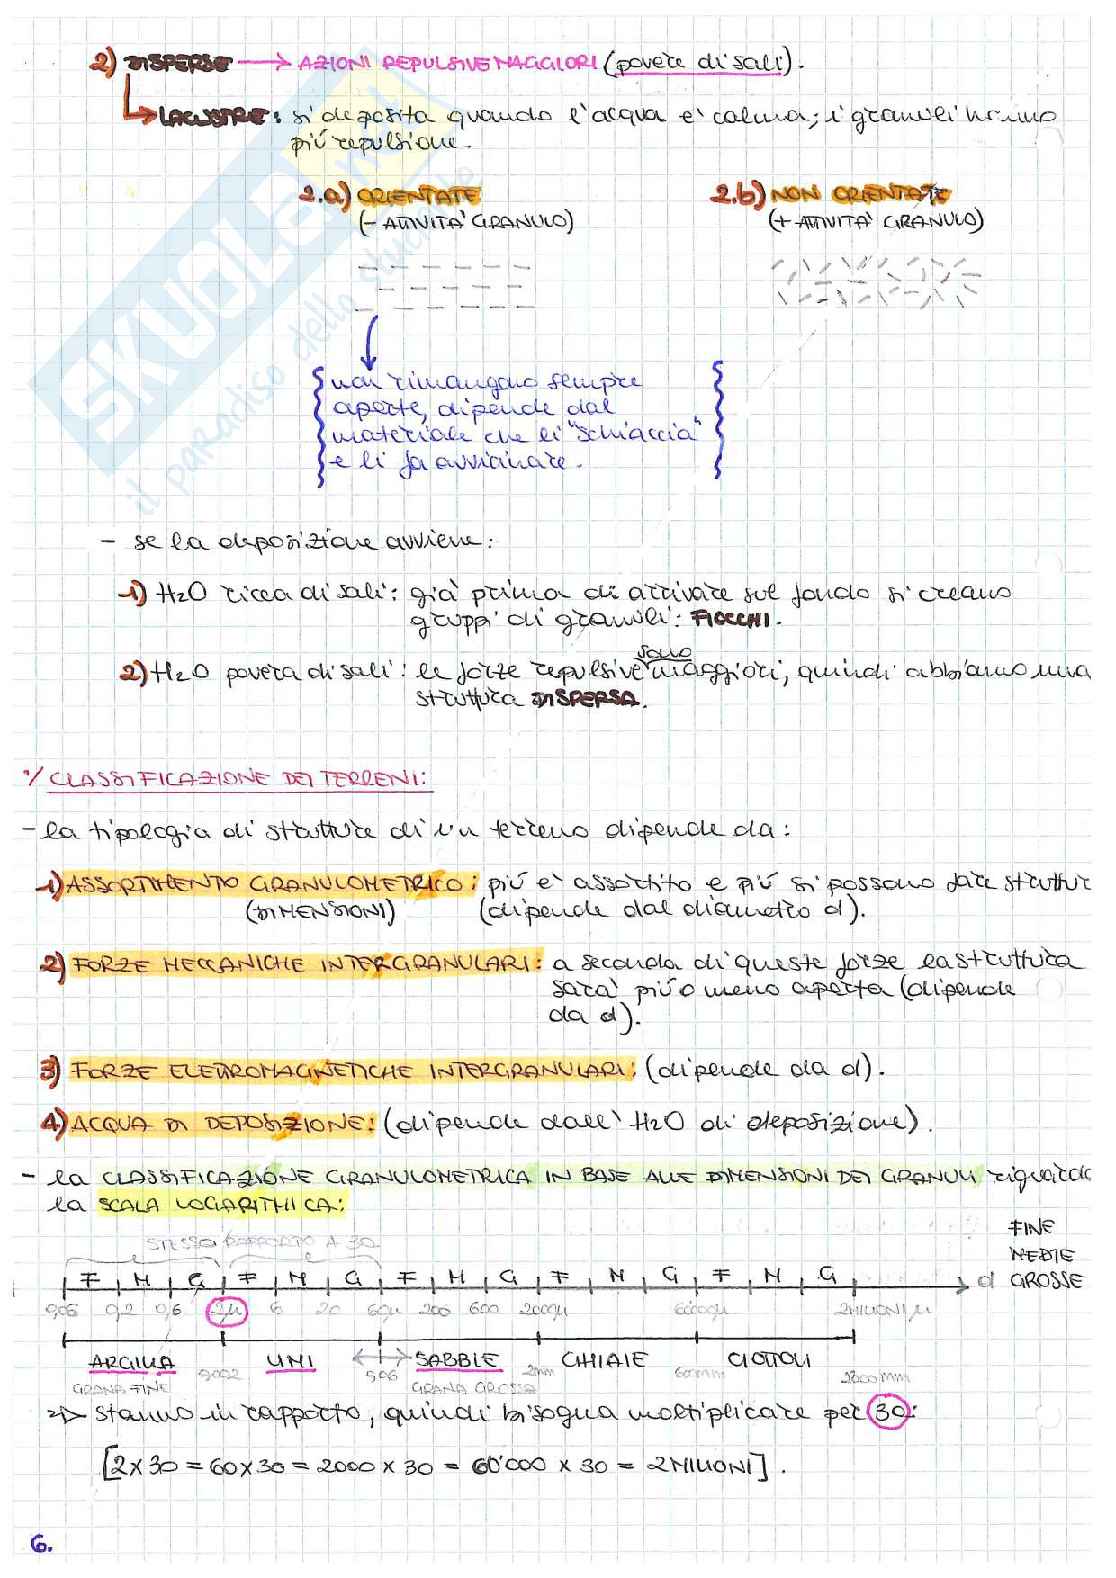 2) DISPERSE → AZIONI REPULSIVE MAGGIORI (povere di sali).
LACUSTRE: si deposita quando l'acqua è calma; i granuli hanno
più repulsione.
2.a) ORIENTATE 2.b) NON ORIENTATE
(- ATTIVITA' GRANULO) (+ ATTIVITA' GRANULO)
non rimangono sempre
aperte, dipende dal
materiale che li "schiaccia"
e li fa avvicinare.
- se la deposizione avviene:
1) H2O ricca di sali: già prima di arrivare sul fondo si creano
gruppi di granuli: FIOCCHI.
2) H2O povera di sali: le forze repulsive sono maggiori, quindi abbiamo una
struttura DISPERSA.
°/ CLASSIFICAZIONE DEI TERRENI:
- la tipologia di strutture di un terreno dipende da:
1) ASSORTIMENTO GRANULOMETRICO: più è assortito e più si possono fare struttur
(DIMENSIONI) (dipende dal diametro d).
2) FORZE MECCANICHE INTERGRANULARI: a seconda di queste forze la struttura
sarà più o meno aperta (dipende
da d).
3) FORZE ELETTROMAGNETICHE INTERGRANULARI: (dipende da d).
4) ACQUA DI DEPOSIZIONE: (dipende dall'H2O di deposizione).
- la CLASSIFICAZIONE GRANULOMETRICA IN BASE ALLE DIMENSIONI DEI GRANULI riguarda
la SCALA LOGARITMICA:
STESSO RAPPORTO A 30 FINE
MEDIE
F M G F M G F M G F M G F M G d GROSSE
0,06 0,2 0,6 2μ 6 20 60μ 200 600 2000μ 60000μ 2MILIONI μ
ARGILLA 0,002 LIMI 0,06 SABBIE 2mm GHIAIE 60mm CIOTTOLI 2000mm
GRANA FINE GRANA GROSSA
stanno in rapporto, quindi bisogna moltiplicare per 30:
[2 x 30 = 60 x 30 = 2000 x 30 = 60'000 x 30 = 2MILIONI].
6.
SKUOLA.net
il paradiso dello studente